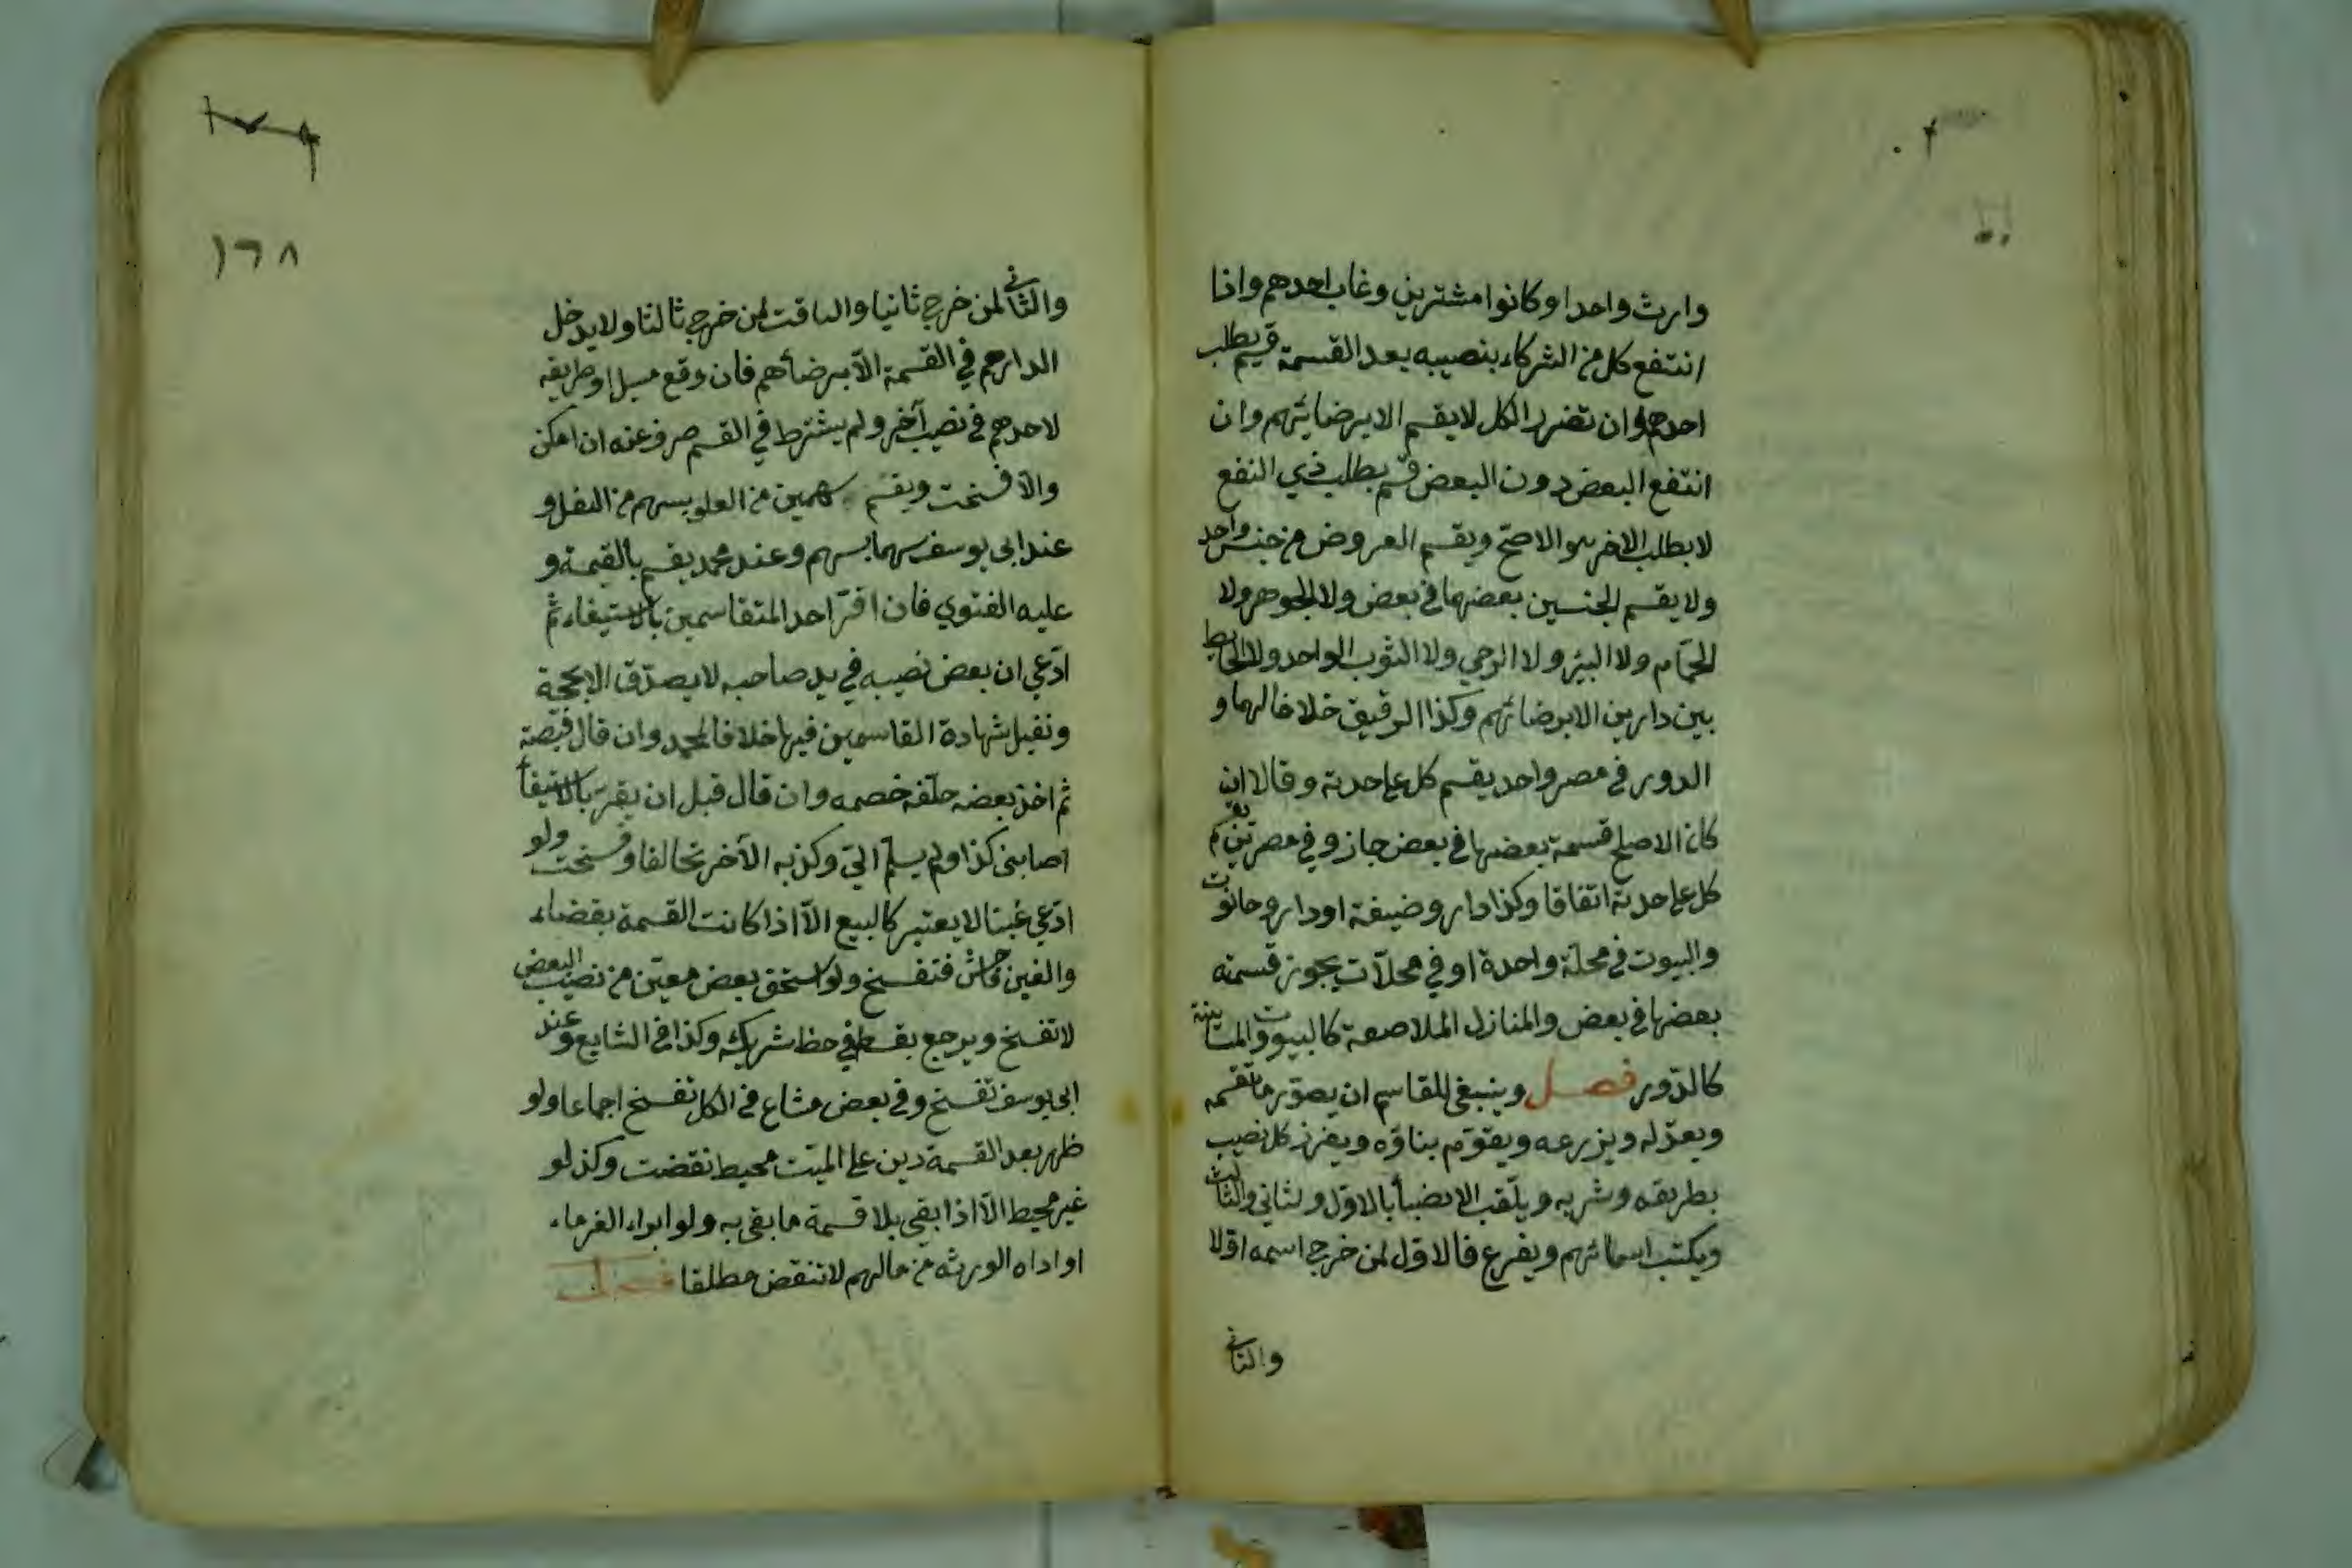 وارث واحد او كانوا مشترين وغاب احدهم واذا
انتفع كل من الشركاء بنصيبه بعد القسمة قسم بطلب
احدهم وان تضرر الكل لا يقسم الا برضائهم وان
انتفع البعض دون البعض قسم بطلب ذي النفع
لا بطلب الاخر هو الاصح ويقسم العروض من جنس واحد
ولا يقسم الجنسين بعضهما في بعض ولا الجوهر ولا
الحمّام ولا البئر ولا الرحي ولا الثوب الواحد ولا الحايط
بين دارين الا برضائهم وكذا الرقيق خلافا لهما و
الدور في مصر واحد يقسم كل على حدته وقالا ان
كان الاصلح قسمة بعضها في بعض جاز وفي مصرين يقسم
كل على حدته اتفاقا وكذا دار وضيعة او دار وحانوت
والبيوت في محلة واحدة او في محلّات يجوز قسمته
بعضها في بعض والمنازل الملاصقة كالبيوت والمتباينة
كالدّور فصل وينبغي للقاسم ان يصوّر ما يقسمه
ويعدّله ويذرعه ويقوّم بناؤه ويفرز كل نصيب
بطريقه وشربه ويلّقب الانصبأ بالاوّل ولثاني والثالث
ويكتب اسمائهم ويقرع فالاول لمن خرج اسمه اوّلا
والثاني
١٧٩
١٦٨
والثاني لمن خرج ثانيا والباقي لمن خرج ثالثا ولا يدخل
الدارهم في القسمة الّا برضأهم فان وقع مسيل او طريقه
لاحدهم في نصيب آخر ولم يشترط في القسم صرف عنه ان امكن
والّا فسخت ويقسم سهمين من العلو بسهم من السفل و
عند ابي يوسف سهما بسهم وعند محمد يقسم بالقيمة و
عليه الفتوي فان اقرّ احد المتقاسمين بالاستيفاء ثم
ادّعي ان بعض نصيبه في يد صاحبه لا يصدّق الا بحجة
وتقبل شهادة القاسمين فيها خلافا لمحمد وان قال قبضته
ثم اخذ بعضه حلّفه خصمه وان قال قبل ان يقرّ بالاستيفأ
اصابني كذا ولم يسلّم اليّ وكذبه الآخر تحالفا وفسخت ولو
ادّعي غبنا لا يعتبر كالبيع الّا اذا كانت القسمة بقضاء
والغبن فاحش فتفسخ ولو استحق بعض معيّن من نصيب البعض
لا تفسخ ويرجع بقسطه في حظ شريكه وكذا في الشايع وعند
ابي يوسف تفسخ وفي بعض مشاع في الكل تفسخ اجماعا ولو
ظهر بعد القسمة دين على الميّت محيط نقضت وكذ لو
غير محيط الّا اذا بقي بلا قسمة ما بقي به ولو ابراء الغرماء
او اداه الورثه من مالهم لا تنقض مطلقا فصل